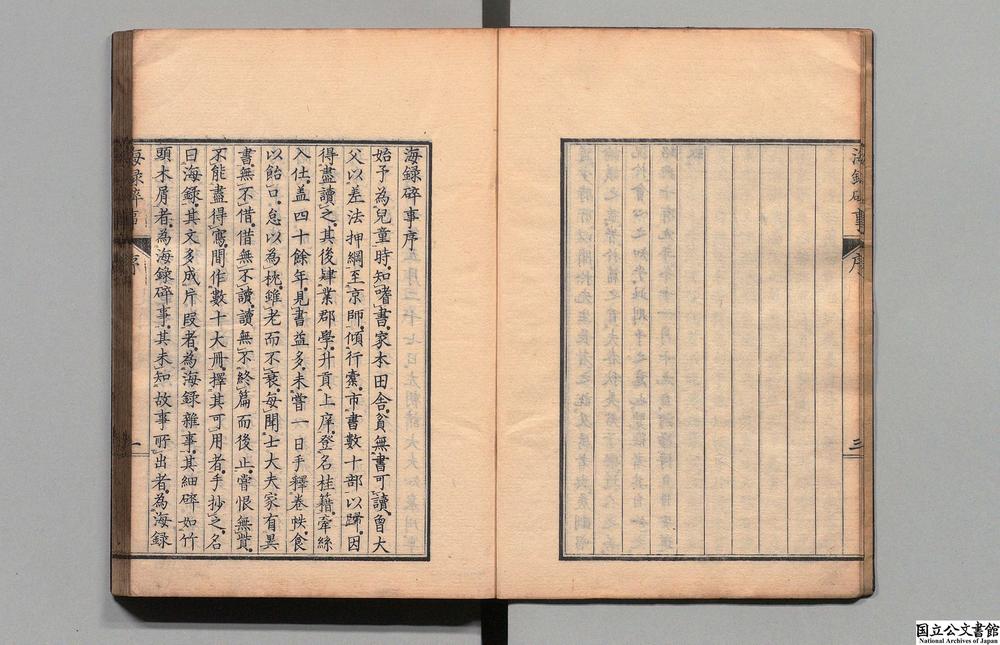 海録碎事
序
三
海録碎事序
始予為兒童時知嗜書家本田舎貧無書可讀曾大
父以差法押綱至京師傾行橐市書數十部以歸因
得盡讀之其後肄業郡學升貢上庠登名桂籍牽絲
入仕盖四十餘年見書益多未嘗一日手釋卷帙食
以飴口怠以為枕雖老而不衰每聞士大夫家有異
書無不借借無不讀讀無不終篇而後止嘗恨無貲
不能盡得寫間作數十大冊擇其可用者手抄之名
曰海録其文多成片段者為海録雜事其細碎如竹
頭木屑者為海録碎事其未知故事所出者為海録
海録碎事
序
一
国立公文書館
National Archives of Japan